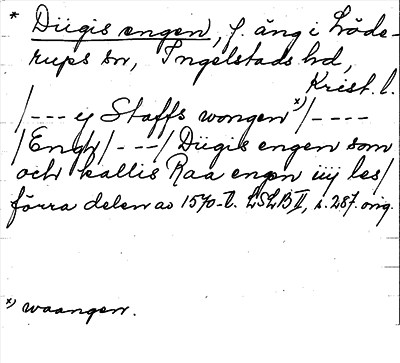 * Diigis engen, f. äng i Löde-
rups sn, Ingelstads hd,
Krist. l.
/--- ej Staffs wongen x)/----
/Engh/---/Diigis engen som
och kallis Raa engen iiij les/
förra delen av 1570-t. LSLB II, s. 287. orig.
x) waangen.